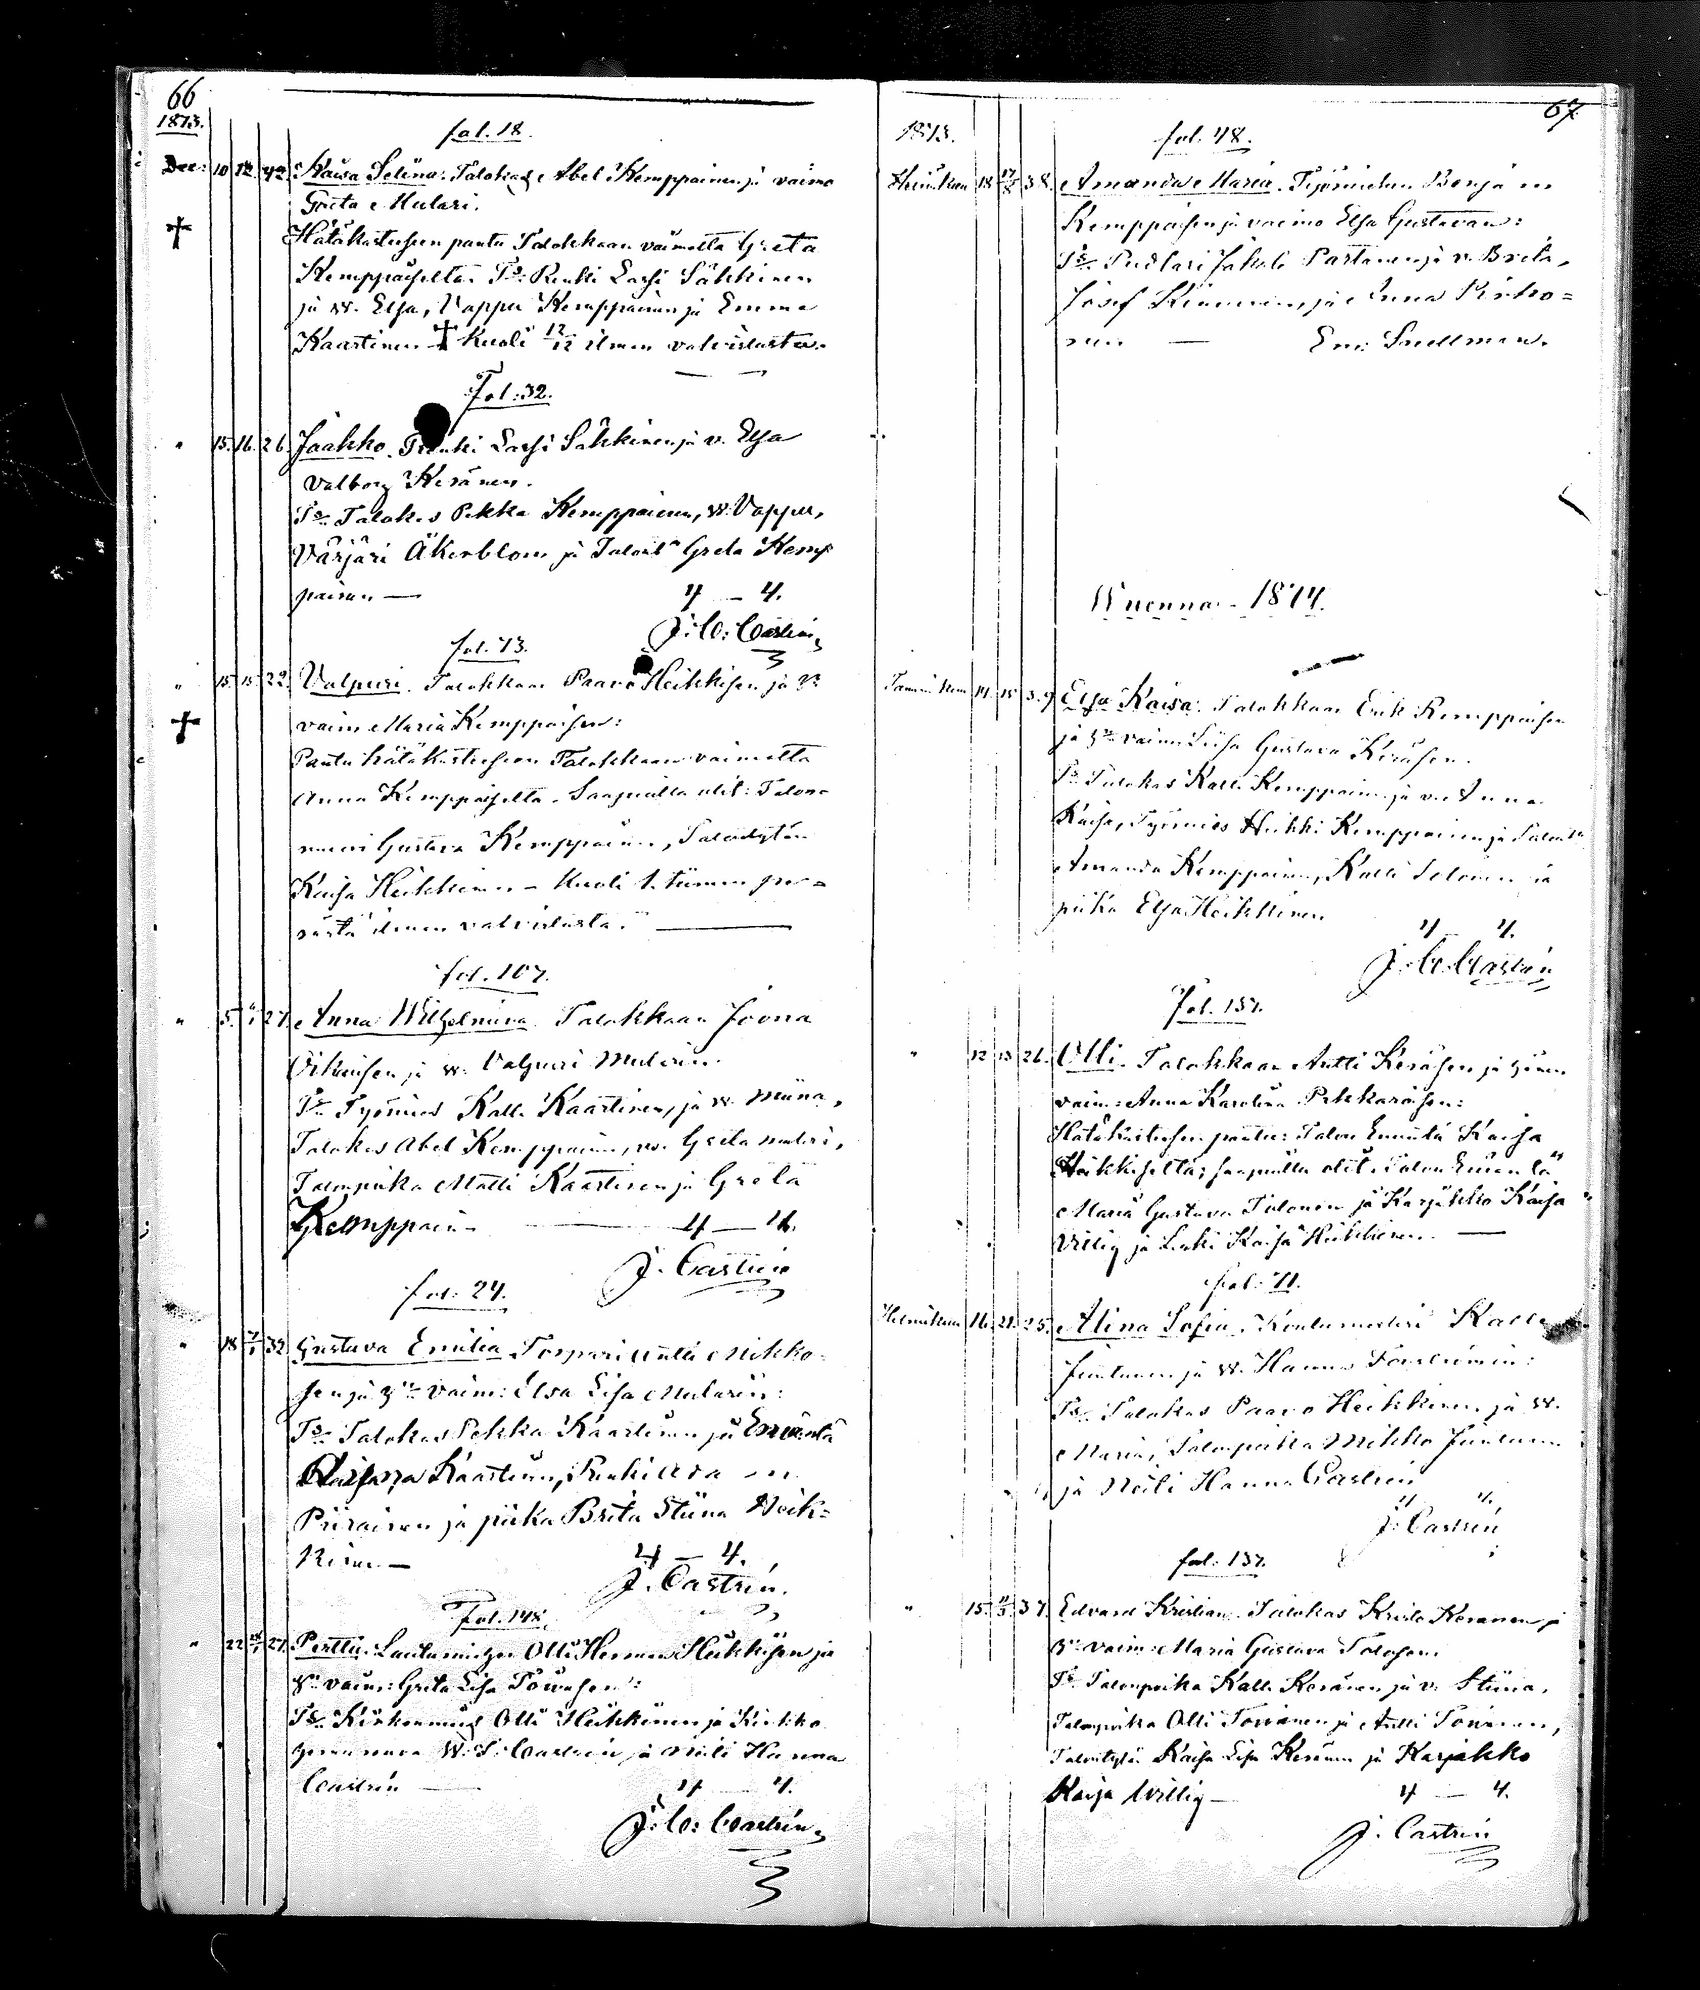 66
1873.
fol. 18.
Dec: 10 12 42 Kaisa Selina. Talokas Abel Kemppainen ja vaimo
Greta Mulari.
Hätäkasteeseen pantu Talokkaan vaimolta Greta
Kemppaiselta. Ts: Renki Lassi Säkkinen
ja w. Elsa, Vappu Kemppainen ja Emma
Kaartinen † Kuoli 12/12 ilman vahvistusta.
Fol: 32.
" 15. 16. 26. Jaakko. Renki Lassi Säkkinen ja v. Elsa
Valborg Keränen.
Ts. Talokas Pekka Kemppainen, w. Vappu,
Värjäri Åkerblom ja Greta Kemp
painen —
4 — 4.
J: C: Castrén
fol. 73.
" 15. 15. 22. Valpuri. Talokkaan Paavo Heikkisen ja
vaim Maria Kemppaisen:
Pantu hätäkasteeseen Talokkaan vaimolta
Anna Kemppaiselta. Saapuilla olit: Talon
Gustava Kemppainen, Talontytär
Kaisa Heikkinen – Kuoli 1. tiiman pe=
rästä ilman vahvistusta.
fol. 107.
" 5. 27. Anna Wilhelmina. Talokkaan Joona
ja w. Valpuri Mularin.
Ts. Työmies Kalle Kaartinen, ja w. Miina,
Talokas Abel Kemppainen, w. Greta Mulari,
Talonpoika Matti Kaartinen ja Greta
Kemppain–
4 — 4.
J. Castrén
fol: 24.
" 18 7/1 32 Gustava Emilia. Torpari Antti Mikko-
sen ja vaim: Elsa Lisa Mularin:
Ts. Talokas Pekka Kaartinen ja Emäntä
Kaartinen, Renki
Piirainen ja piika Brita Stiina Heik=
kinen —
4 — 4.
J. Castrén.
Fol. 148.
" 22 27. Perttu. Lautamiehen Olli Herman Heikkisen ja
vaim: Greta Lisa Toivasen:
Ts. Kirkonmies Olli Heikkinen ja Kirkko
herranrouva W. S. Castrén ja Neiti Hanna
Castrén —
4 — 4.
J: C: Castrén
67.
1873.
fol. 48.
18 38. Amanda Maria. Työmiehen Benjam
Kemppaisen ja vaimo Elsa Gustavan:
Ts. Jakob Partanen ja v. Brita,
Josef Kinnunen, ja Anna Pirho=
nen —
Em: Snellman.
Wuonna - 1874.
Tammikuu 14. 15 39 Elsa Kaisa. Talokkaan Erik Kemppaisen
ja vaim Liisa Gustava Keräsen.
Ts. Talokas Kalle Kemppainen ja v. Anna
Kaisa, Työmies Heikki Kemppainen ja
Amanda Kemppainen, Kalle Tolonen ja
piika Elsa Heikkinen
4 4.
J: C. Castrén
Fol. 137.
" 12 13 26. Olli. Talokkaan Antti Keräsen ja hänen
vaim: Anna Karolina Pikkaraisen:
Hätäkasteesen pantu: Talon Emäntä Kaisa
Heikkiseltä; saapuilla olit. Talon Emäntä
Maria Gustava Tolonen ja Karjakko Kaisa
Villig ja Leski Kaisa Heikkinen. —
fol: 71.
Helmikuu 16. 21. 25. Alina Sofia. Koulumestari Kalle
Juntunen ja w. Hanna
Ts. Talokas Paavo Heikkinen, ja w.
Maria, Talonpoika Mikko Juntunen
ja Neiti Hanna Castrén
4 4.
J: Castrén
fol: 137.
" 15. 37. Edvard Kristian. Talokas Kristo Keränen ja
vaim: Maria Gustava Tolosen.
Ts. Talonpoika Kalle Keränen ja v. Stiina,
Talonpoika Olli Toivanen ja Antti Toivanen,
Talontytär Kaisa Lisa Keränen ja Karjakko
Kaisa Willig —
4 — 4.
J. Castrén